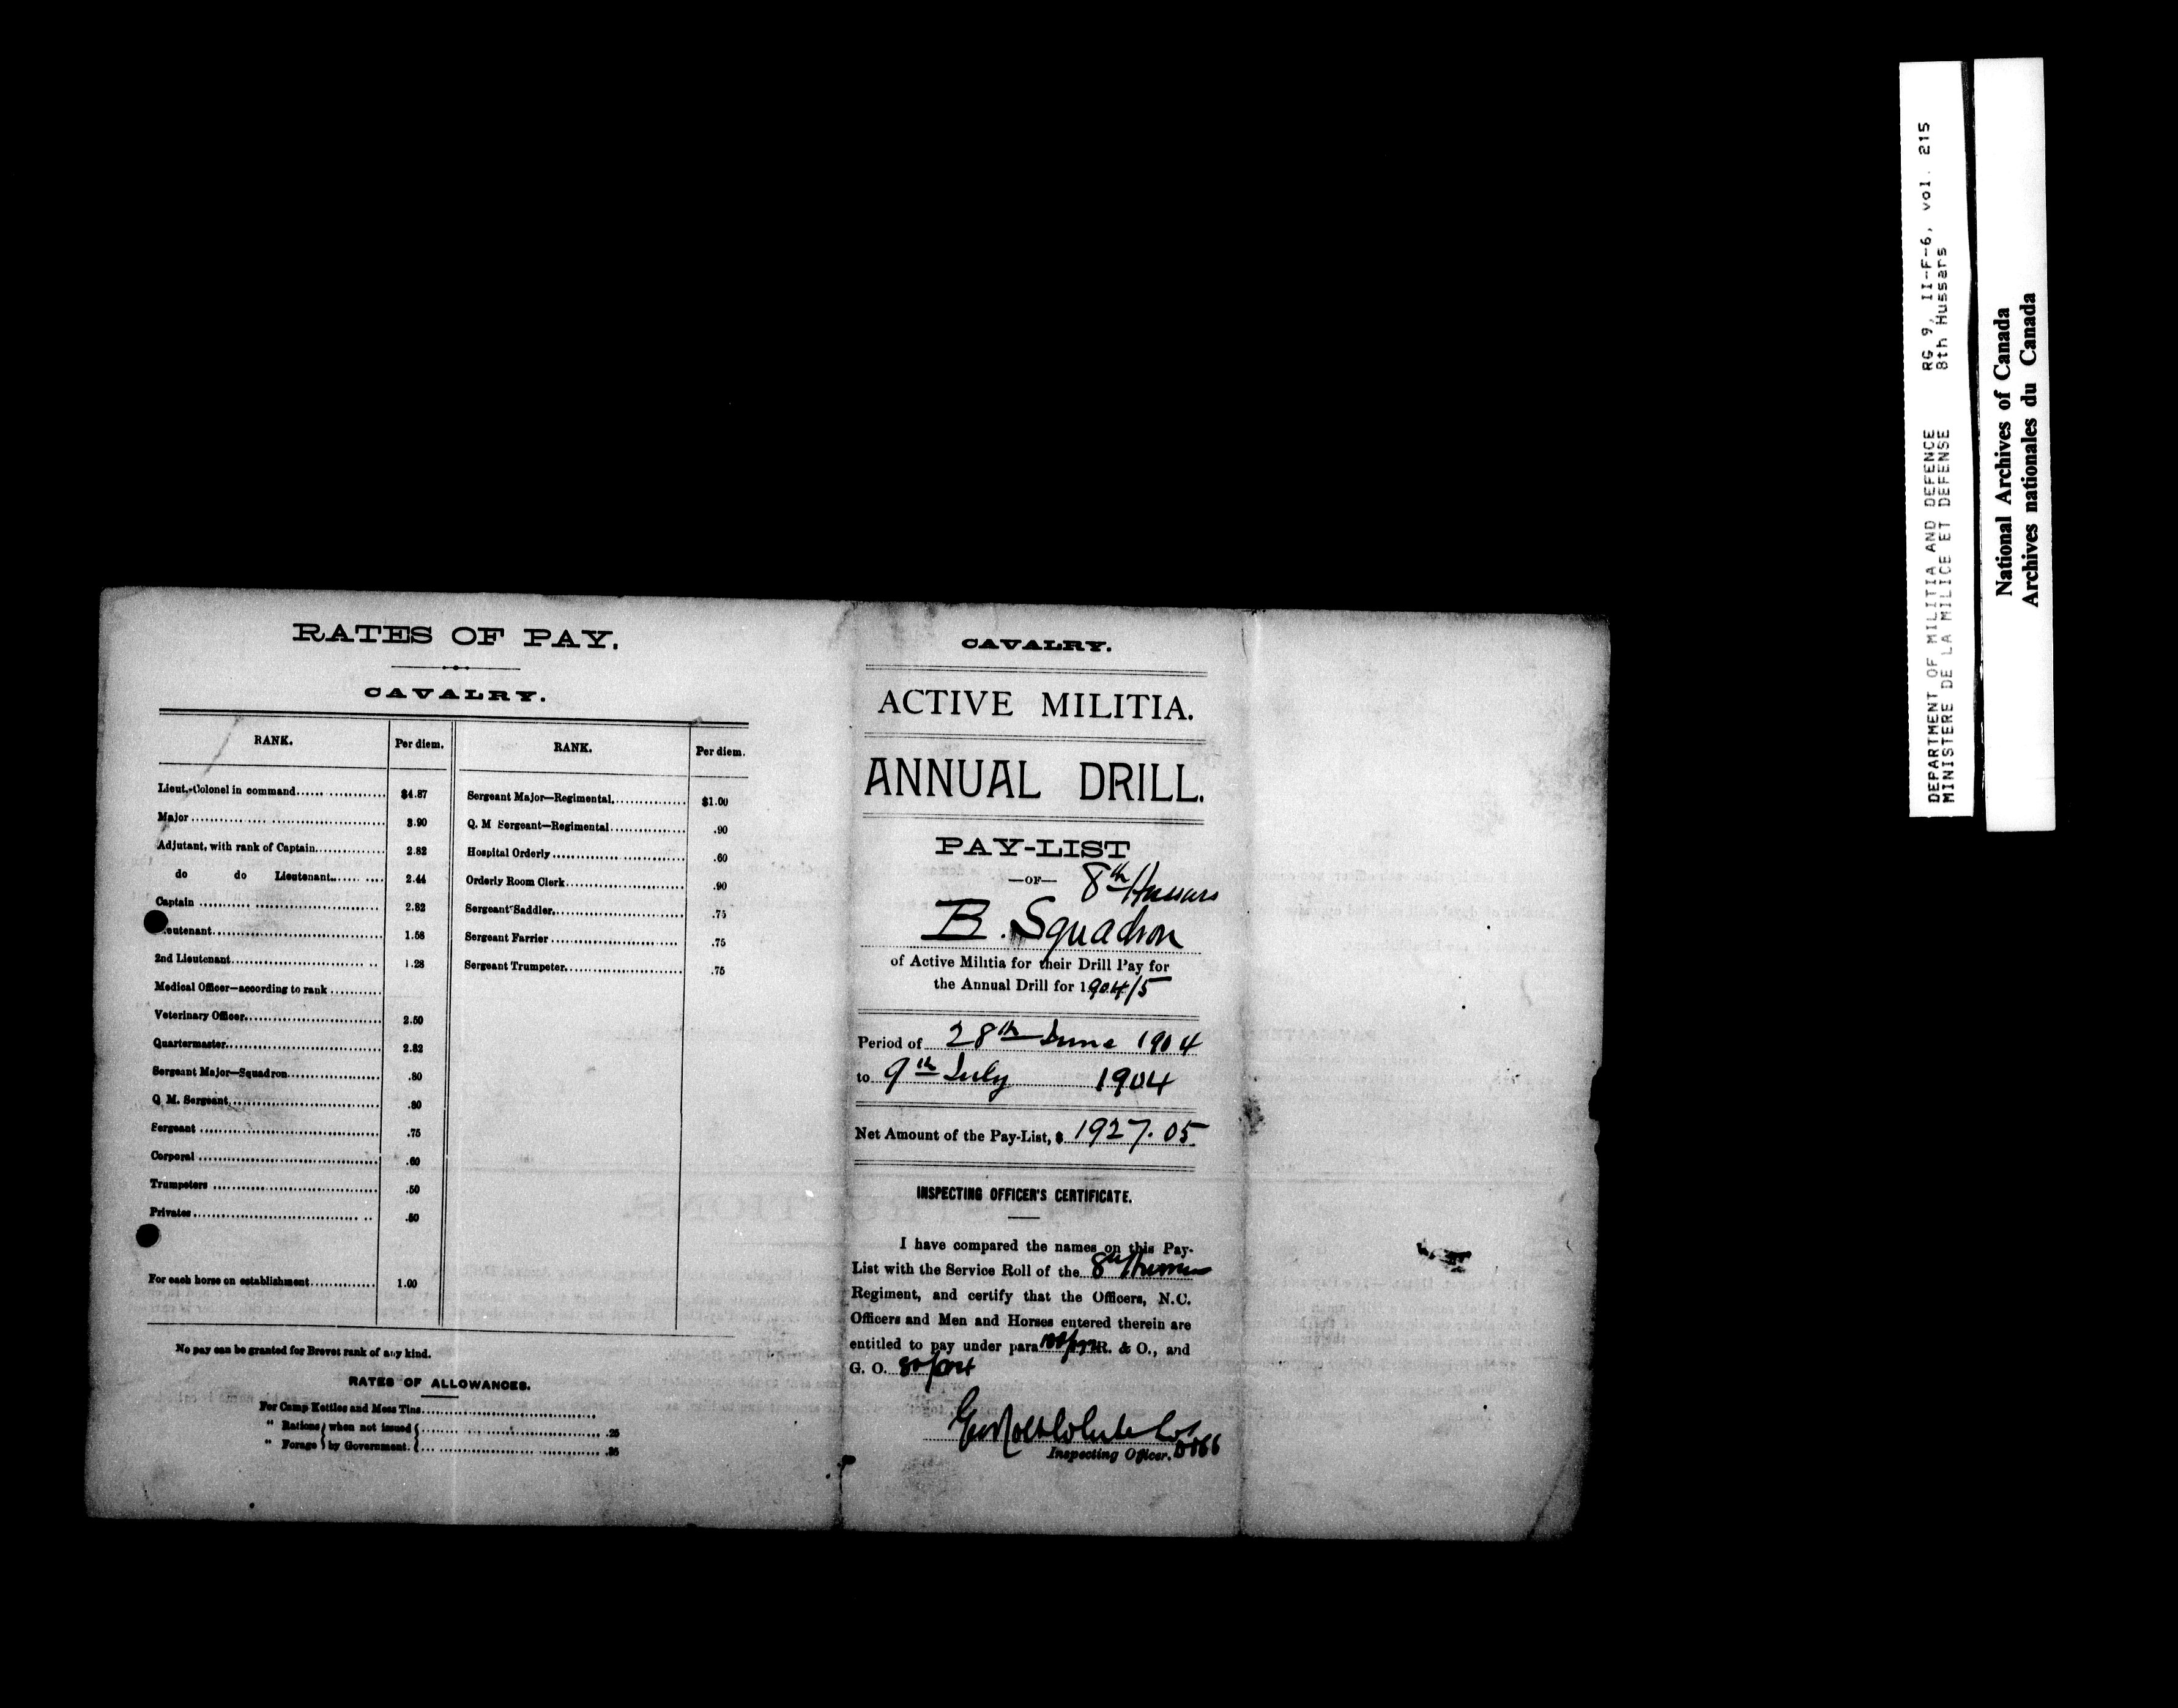 RATES OF PAY.
CAVALRY.
RANK. Per diem. RANK. Per diem.
Lieut.-Colonel in command $4.87 Sergeant Major—Regimental $1.00
Major 3.90 Q. M Sergeant—Regimental .90
Adjutant, with rank of Captain 2.82 Hospital Orderly .60
do do Lieutenant 2.44 Orderly Room Clerk .90
Captain 2.82 Sergeant Saddler .75
eutenant 1.58 Sergeant Farrier .75
2nd Lieutenant 1.28 Sergeant Trumpeter .75
Medical Officer—according to rank
Veterinary Officer 2.50
Quartermaster 2.82
Sergeant Major—Squadron .80
Q M. Sergeant .80
Sergeant .75
Corporal .60
Trumpeters .50
Privates .50
For each horse on establishment 1.00
No pay can be granted for Brevet rank of any kind.
RATES OF ALLOWANCES.
For Camp Kettles and Mess Tins
" Rations } when not issued { .25
" Forage } by Government. { .35
CAVALRY.
ACTIVE MILITIA.
ANNUAL DRILL.
PAY-LIST
—OF— 8th Hussars
B. Squadron
of Active Militia for their Drill Pay for
the Annual Drill for 1904/5
Period of 28th June 1904
to 9th July 1904
Net Amount of the Pay-List, $ 1927.05
INSPECTING OFFICER'S CERTIFICATE.
I have compared the names on this Pay-
List with the Service Roll of the 8th Hussars
Regiment, and certify that the Officers, N.C.
Officers and Men and Horses entered therein are
entitled to pay under para R. & O., and
G. O.
Inspecting Officer.
DEPARTMENT OF MILITIA AND DEFENCE RG 9, II-F-6, vol. 215
MINISTERE DE LA MILICE ET DEFENSE 8th Hussars
National Archives of Canada
Archives nationales du Canada